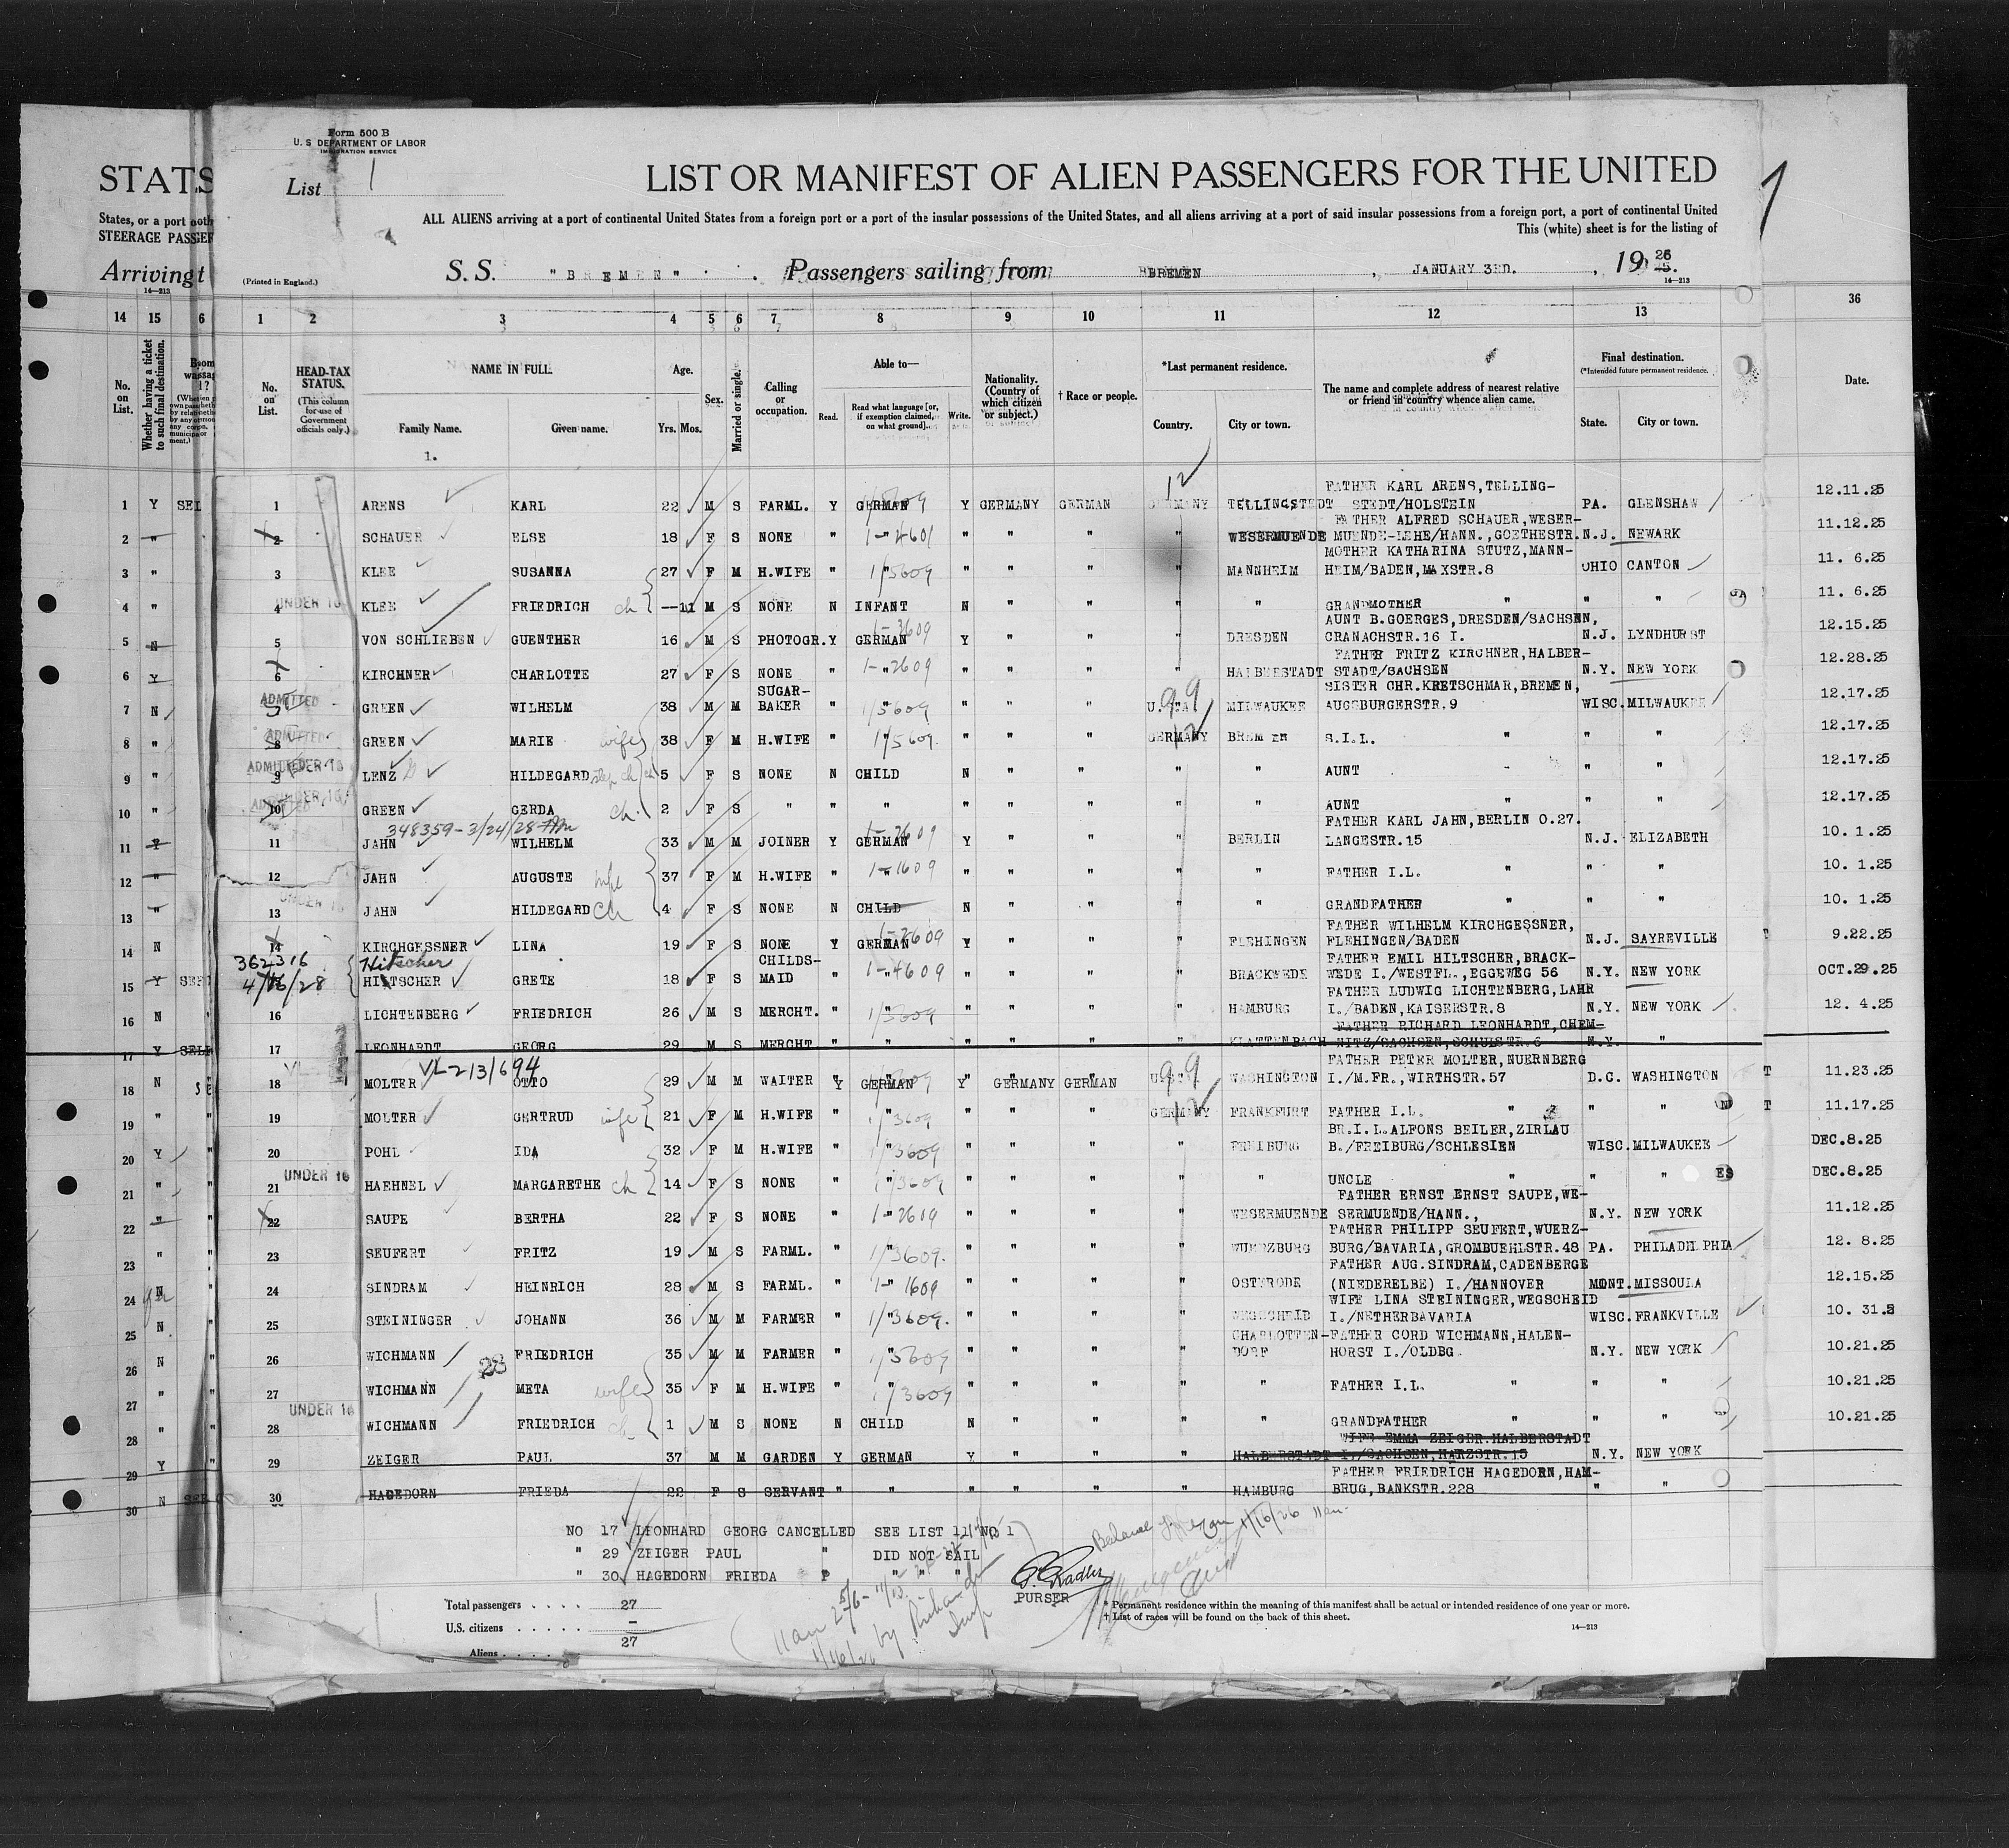 Form 500 B
U. S DEPARTMENT OF LABOR
IMMIGRATION SERVICE
STATS
List 1
LIST OR MANIFEST OF ALIEN PASSENGERS FOR THE UNITED
1
States, or a port
STEERAGE PASSEF
ALL ALIENS arriving at a port of continental United States from a foreign port or a port of the insular possessions of the United States, and all aliens arriving at a port of said insular possessions from a foreign port, a port of continental United
This (white) sheet is for the listing of
Arriving t
(Printed in England.)
S.S. "BREMEN" . Passengers sailing from BREMEN , JANUARY 3RD. , 19 26
14—213
14—213
14 15 6 1 2 3 4 5 6 7 8 9 10 11 12 13 36
No. on List.
Whether having a ticket to such final destination.
No. on List.
HEAD-TAX STATUS. (This column for use of Government officials only.)
NAME IN FULL.
Family Name. Given name.
Age.
Yrs. Mos.
Sex.
Married or single.
Calling or occupation.
Able to—
Read. Read what language [or, if exemption claimed, on what ground]. Write.
Nationality. (Country of which citizen or subject.)
† Race or people.
*Last permanent residence.
Country. City or town.
The name and complete address of nearest relative or friend in country whence alien came.
Final destination.
(*Intended future permanent residence.)
State. City or town.
Date.
1.
12
FATHER KARL ARENS, TELLING-
1 Y SEL 1 ARENS KARL 22 M S FARML. Y GERMAN Y GERMANY GERMAN GERMANY TELLINGSTEDT STEDT/HOLSTEIN PA. GLENSHAW 12.11.25
FATHER ALFRED SCHAUER, WESER-
2 " 2 SCHAUER ELSE 18 F S NONE " 1-4601 " " " " WESERMUENDE MUENDE-LEHE/HANN., GOETHESTR. N.J. NEWARK 11.12.25
MOTHER KATHARINA STUTZ, MANN-
3 " 3 KLEE SUSANNA 27 F M H.WIFE " " 1/5609 " " " " MANNHEIM HEIM/BADEN, MAXSTR.8 OHIO CANTON 11. 6.25
4 " UNDER 16 4 KLEE FRIEDRICH ch —11 M S NONE N INFANT N " " " " GRANDMOTHER " " " 11. 6.25
AUNT B.GOERGES, DRESDEN/SACHSEN,
5 N 5 VON SCHLIEBEN GUENTHER 16 M S PHOTOGR. Y GERMAN 1-3609 Y " " " DRESDEN CRANACHSTR.16 I. N.J. LYNDHURST 12.15.25
FATHER FRITZ KIRCHNER, HALBER-
6 Y 6 KIRCHNER CHARLOTTE 27 F S NONE " " 1-2609 " " " " HALBERSTADT STADT/SACHSEN N.Y. NEW YORK 12.28.25
SUGAR-
SISTER CHR. KRETSCHMAR, BREMEN,
7 N ADMITTED GREEN WILHELM 38 M M BAKER " " 1/5609 " " " U.S.A. 99 MILWAUKEE AUGSBURGERSTR.9 WISC. MILWAUKEE 12.17.25
8 " ADMITTED 8 GREEN MARIE wife 38 F M H.WIFE " " 1/5609. " " " GERMANY 12 BREMEN S.I.L. " " " 12.17.25
9 " ADMITTED UNDER 16 9 LENZ HILDEGARD step ch 5 F S NONE N CHILD N " " " " AUNT " " " 12.17.25
10 " ADMITTED UNDER 16 10 GREEN GERDA ch. 2 F S " " " " " " " " AUNT " " " 12.17.25
348359-3/24/28
FATHER KARL JAHN, BERLIN O.27.
11 Y 11 JAHN WILHELM 33 M M JOINER Y GERMAN 1-2609 Y " " " BERLIN LANGESTR.15 N.J. ELIZABETH 10. 1.25
12 " 12 JAHN AUGUSTE wife 37 F M H.WIFE " " 1-1609 " " " " " FATHER I.L. " " " 10. 1.25
13 " UNDER 16 13 JAHN HILDEGARD Ch 4 F S NONE N CHILD N " " " " GRANDFATHER " " " 10. 1.25
FATHER WILHELM KIRCHGESSNER,
14 N 14 KIRCHGESSNER LINA 19 F S NONE Y GERMAN 1-2609 Y " " " FLEHINGEN FLEHINGEN/BADEN N.J. SAYREVILLE 9.22.25
362316 Hitscher
CHILDS-
FATHER EMIL HILTSCHER, BRACK-
15 Y SEF 4/16/28 HILTSCHER GRETE 18 F S MAID " " 1-4609 " " " " BRACKWEDE WEDE I./WESTFL., EGGEWEG 56 N.Y. NEW YORK OCT.29.25
FATHER LUDWIG LICHTENBERG, LAHR
16 N " 16 LICHTENBERG FRIEDRICH 26 M S MERCHT. " " 1/3609 " " " " HAMBURG I./BADEN, KAISERSTR.8 N.Y. NEW YORK 12. 4.25
FATHER RICHARD LEONHARDT, CHEM-
17 Y SELF 17 LEONHARDT GEORG 29 M S MERCHT " " " " " " KLATTENBACH NITZ/SACHSEN, SCHULSTR.6 N.Y. "
VL-213/694
FATHER PETER MOLTER, NUERNBERG
18 N SE 18 MOLTER OTTO 29 M M WAITER Y GERMAN Y GERMANY GERMAN U.S.A. 99 WASHINGTON I./M.FR., WIRTHSTR.57 D.C. WASHINGTON T 11.23.25
19 " " 19 MOLTER GERTRUD wife 21 F M H.WIFE " " 1/3609 " " " GERMANY 12 FRANKFURT FATHER I.L. " " " T 11.17.25
BR.I.L.ALFONS BEILER, ZIRLAU
20 Y " 20 POHL IDA 32 F M H.WIFE " " 1/3609 " " " " FREIBURG B./FREIBURG/SCHLESIEN WISC. MILWAUKEE DEC.8.25
21 " " UNDER 16 21 HAEHNEL MARGARETHE ch 14 F S NONE " " 1/3609 " " " " " UNCLE " " " ES DEC.8.25
FATHER ERNST ERNST SAUPE, WE-
22 " " 22 SAUPE BERTHA 22 F S NONE " " 1-2609 " " " " WESERMUENDE SERMUENDE/HANN., N.Y. NEW YORK 11.12.25
FATHER PHILIPP SEUFERT, WUERZ-
23 " " 23 SEUFERT FRITZ 19 M S FARML. " " 1/3609. " " " " WUERZBURG BURG/BAVARIA, GROMBUEHLSTR.48 PA. PHILADELPHIA 12. 8.25
FATHER AUG.SINDRAM, CADENBERGE
24 N " 24 SINDRAM HEINRICH 28 M S FARML. " " 1-1609 " " " " OSTERODE (NIEDERELBE) I./HANNOVER MONT. MISSOULA 12.15.25
WIFE LINA STEININGER, WEGSCHEID
25 N " 25 STEININGER JOHANN 36 M M FARMER " " 1/3609. " " " " WEGSCHEID I./NETHERBAVARIA WISC. FRANKVILLE 10. 31.2
CHARLOTTEN-
FATHER CORD WICHMANN, HALEN-
26 N " 26 WICHMANN 28 FRIEDRICH 35 M M FARMER " " 1/5609 " " " " DORF HORST I./OLDBG. N.Y. NEW YORK 10.21.25
27 " " 27 WICHMANN META wife 35 F M H.WIFE " " 1/3609 " " " " " FATHER I.L. " " " 10.21.25
28 " " UNDER 16 28 WICHMANN FRIEDRICH ch 1 M S NONE N CHILD N " " " " GRANDFATHER " " " 10.21.25
WIFE EMMA ZEIGER.HALBERSTADT
29 Y " 29 ZEIGER PAUL 37 M M GARDEN Y GERMAN Y " " " HALBERSTADT I./SACHSEN, HARZSTR.15 N.Y. NEW YORK
FATHER FRIEDRICH HAGEDORN, HAM-
30 N 30 HAGEDORN FRIEDA 22 F S SERVANT " " " " " " HAMBURG BRUG, BANKSTR.228 " "
NO 17 LEONHARD GEORG CANCELLED SEE LIST 11 NO 1
" 29 ZEIGER PAUL " DID NOT SAIL
" 30 HAGEDORN FRIEDA " " " "
PURSER
Total passengers . . . . 27
U.S. citizens . . . . . —
Aliens . . . . . 27
* Permanent residence within the meaning of this manifest shall be actual or intended residence of one year or more.
† List of races will be found on the back of this sheet.
14—213